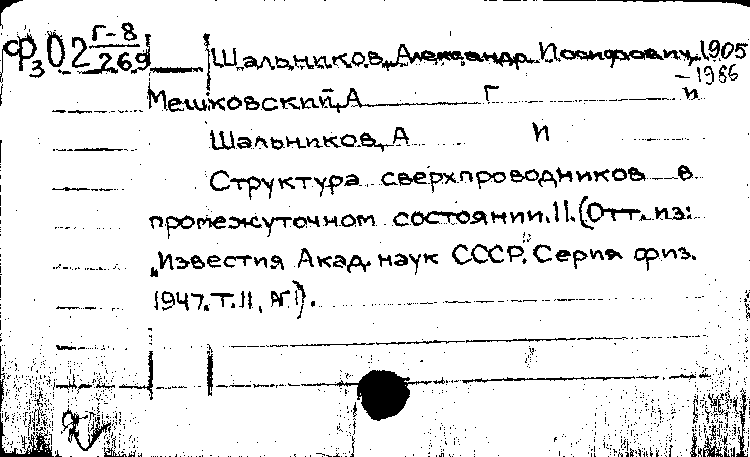 Ф₃ 02 Г-8/269 Шальников, Александр Иосифович, 1905
– 1986
Мешковский, А Г и
Шальников, А И
Структура сверхпроводников в
промежуточном состоянии. II. (Отт. из:
„Известия Акад. наук СССР". Серия физ.
1947. Т. II, № 1).